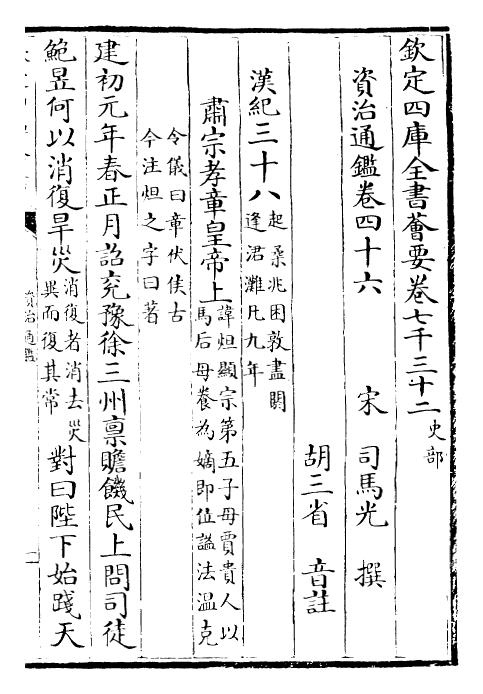 欽定四庫全書薈要卷七千三十二 史部
資治通鑑卷四十六 宋 司馬光 撰
胡三省 音註
漢紀三十八 起柔兆困敦盡閼逢君灘凡九年
肅宗孝章皇帝上 諱炟顯宗第五子母賈貴人以馬后母養為嫡即位謚法温克
令儀曰章伏侯古今注炟之字曰著
建初元年春正月詔兖豫徐三州禀贍饑民上問司徒
鮑昱何以消復旱災 消復者消去災異而復其常 對曰陛下始踐天
資治通鑑